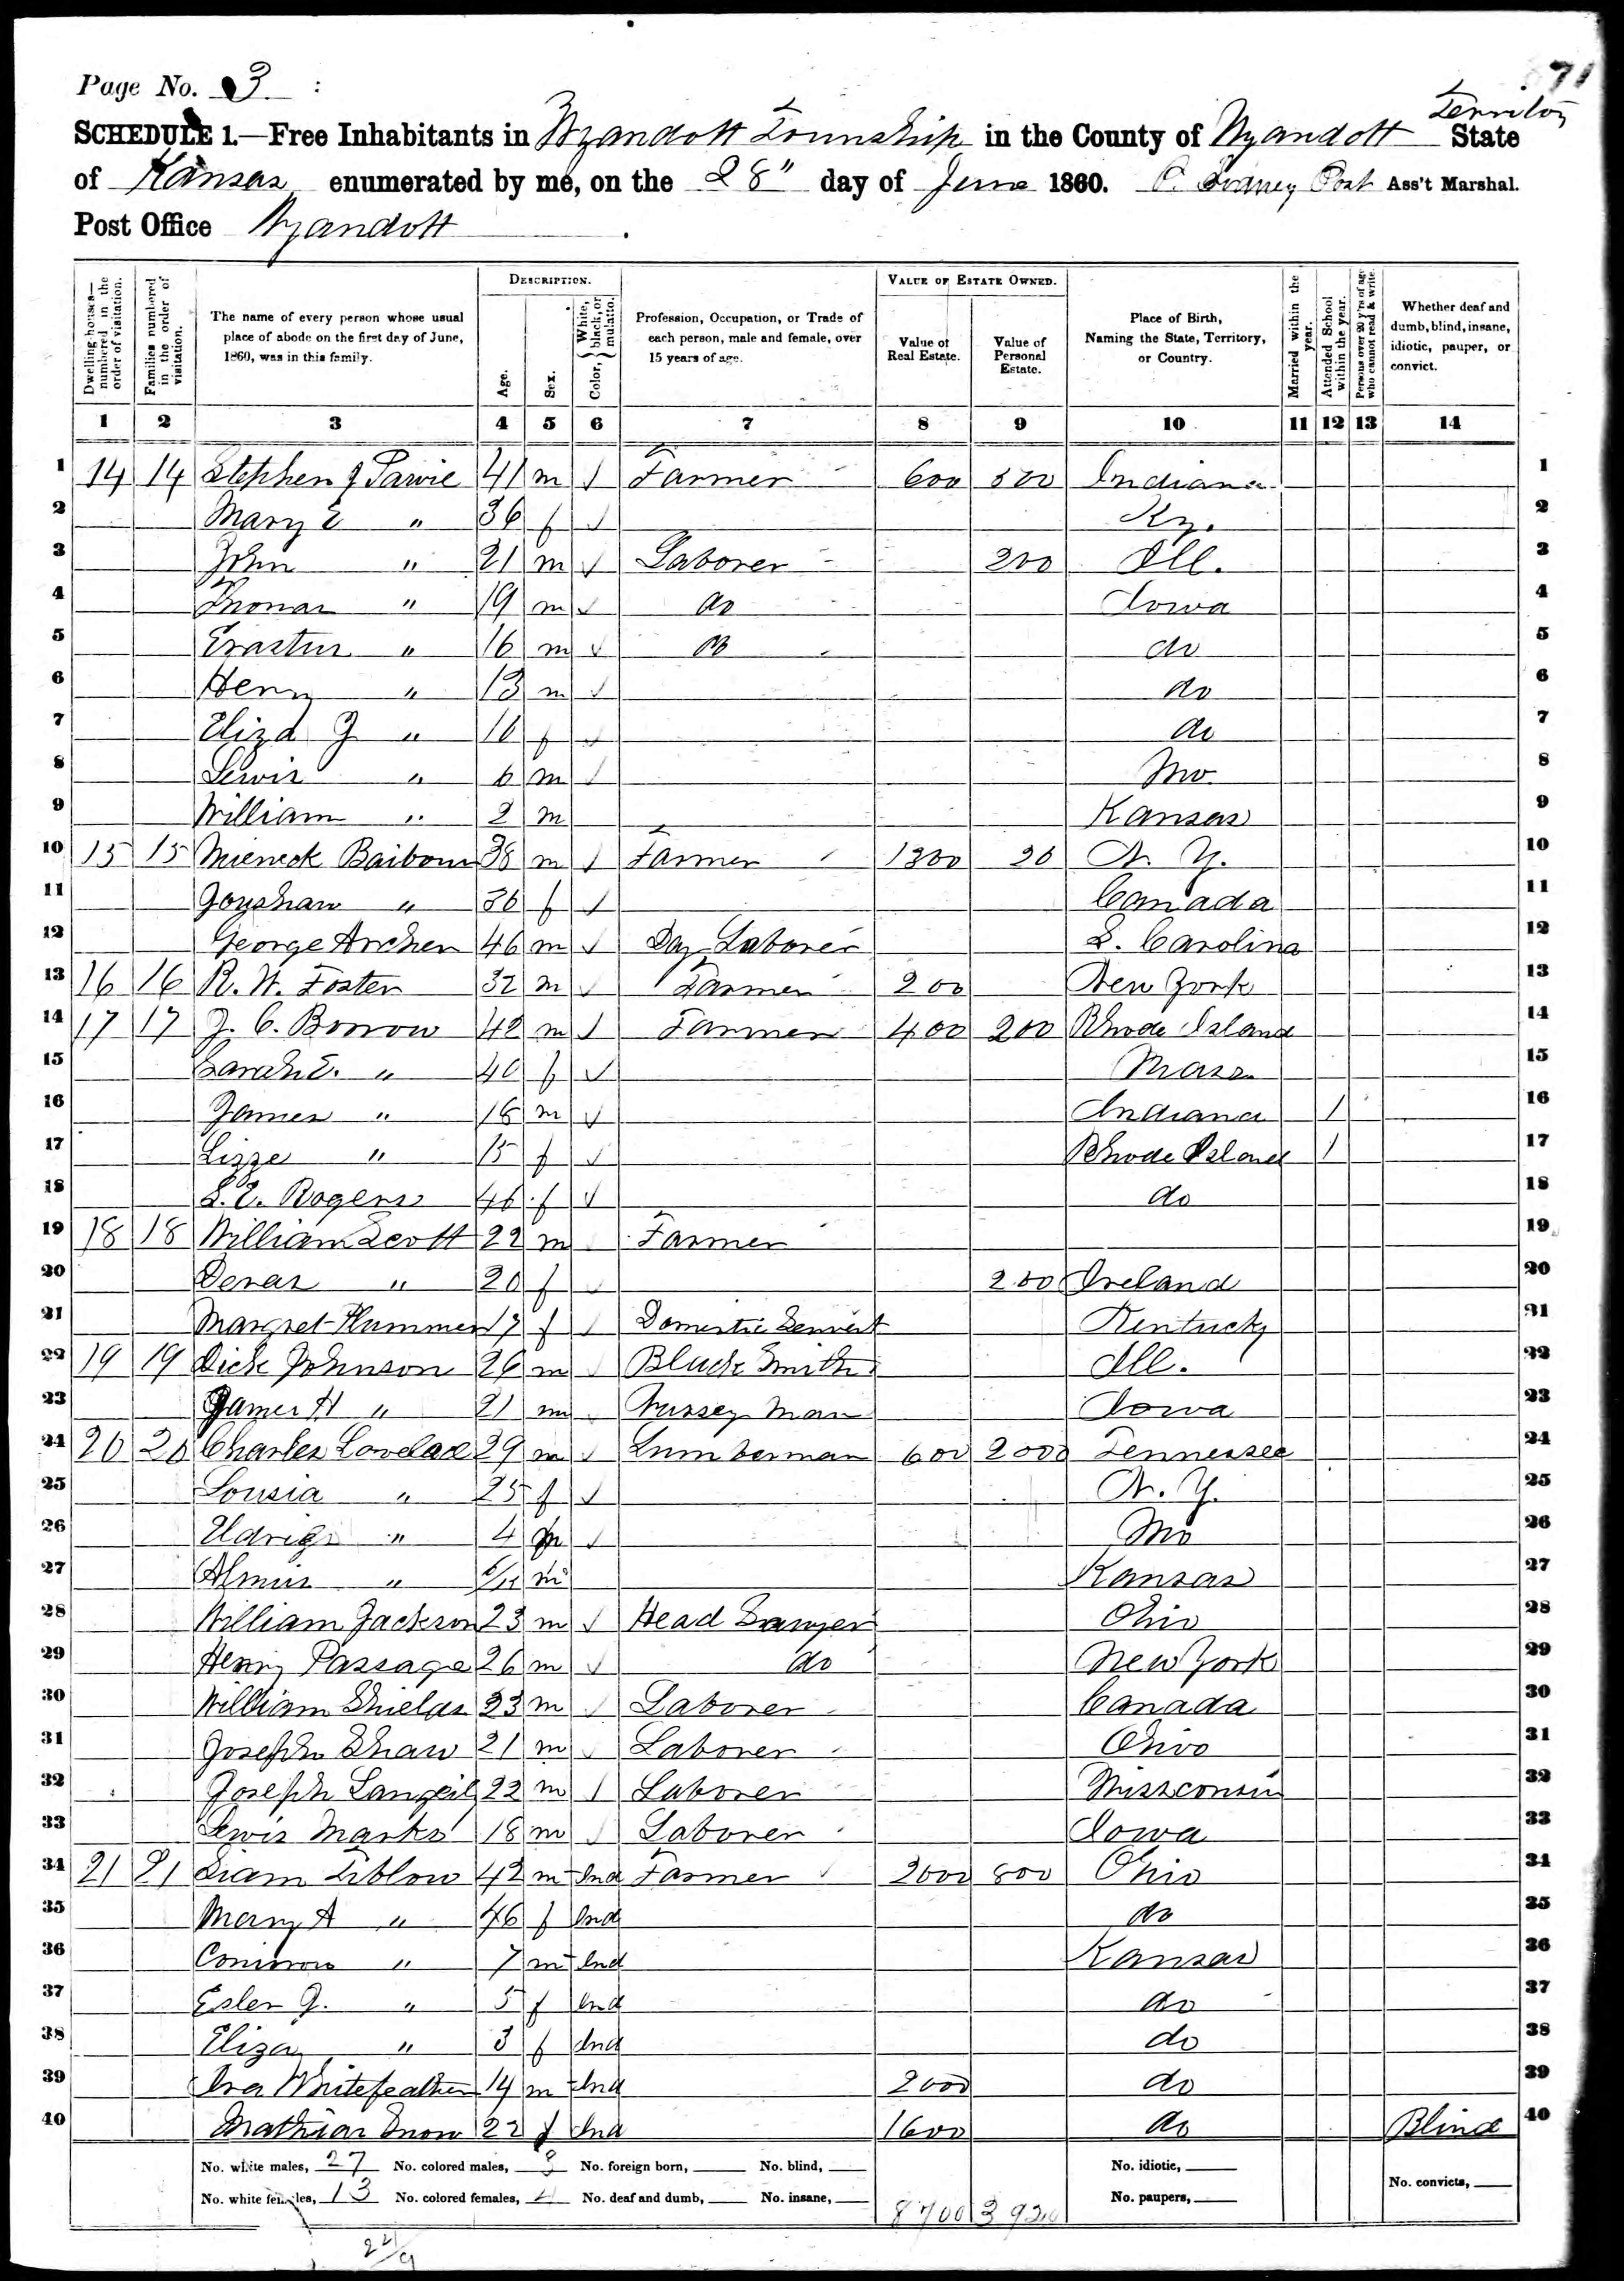 Page No. 3
71
Territory
SCHEDULE 1.—Free Inhabitants in Wyandott Township in the County of Wyandott State
of Kansas enumerated by me, on the 28" day of June 1860. Post Ass't Marshal.
Post Office Wyandott
Dwelling-houses—numbered in the order of visitation.
Families numbered in the order of visitation.
The name of every person whose usual place of abode on the first day of June, 1860, was in this family.
DESCRIPTION.
Age.
Sex.
Color, { White, black, or mulatto.
Profession, Occupation, or Trade of each person, male and female, over 15 years of age.
VALUE OF ESTATE OWNED.
Value of Real Estate.
Value of Personal Estate.
Place of Birth, Naming the State, Territory, or Country.
Married within the year.
Attended School within the year.
Persons over 20 y'rs of age who cannot read & write.
Whether deaf and dumb, blind, insane, idiotic, pauper, or convict.
1 2 3 4 5 6 7 8 9 10 11 12 13 14
1 14 14 Stephen J 41 m Farmer 600 500 Indiana 1
2 Mary E " 36 f Ky. 2
3 John " 21 m Laborer 200 Ill. 3
4 Thomas " 19 m do Iowa 4
5 Erastus " 16 m do do 5
6 Henry " 13 m do 6
7 Eliza J " 10 f do 7
8 Lewis " 6 m Mo. 8
9 William " 2 m Kansas 9
10 15 15 38 m Farmer 1300 N. Y. 10
11 " 36 f Canada 11
12 George Archer 46 m Day Laborer S. Carolina 12
13 16 16 R. W. Foster 32 m Farmer 200 New York 13
14 17 17 J. C. 42 m Farmer 400 200 Rhode Island 14
15 Sarah E. " 40 f Mass. 15
16 James " 18 m Indiana 1 16
17 Lizze " 15 f Rhode Island 1 17
18 S. E. Rogers 46 f do 18
19 18 18 William Scott 22 m Farmer 19
20 " 20 f 200 Ireland 20
21 Margret Plummer 17 f Domestic Servent Kentucky 21
22 19 19 Dick Johnson 26 m Black Smith Ill. 22
23 James H " 21 m Iowa 23
24 20 20 Charles Lovelace 29 m Lumberman 600 2000 Tennessee 24
25 Lousia " 25 f N. Y. 25
26 " 4 m Mo 26
27 " m Kansas 27
28 William Jackson 23 m Head Sawyer Ohio 28
29 Henry Passage 26 m do New York 29
30 William Shields 23 m Laborer Canada 30
31 Joseph Shaw 21 m Laborer Ohio 31
32 Joseph 22 m Laborer Wissconsin 32
33 Lewis Marks 18 m Laborer Iowa 33
34 21 21 Tiblow 42 m Ind Farmer 2000 800 Ohio 34
35 Mary A " 46 f Ind do 35
36 " 7 m Ind Kansas 36
37 J. " 5 f Ind do 37
38 Eliza " 3 f Ind do 38
39 Ira Whitefeather 14 m Ind 2000 do 39
40 Mathias Snow 22 f Ind 1600 do Blind 40
No. white males, 27 No. colored males, 3 No. foreign born, No. blind, No. idiotic,
No. white females, 13 No. colored females, 4 No. deaf and dumb, No. insane, 8700 3920 No. paupers, No. convicts,